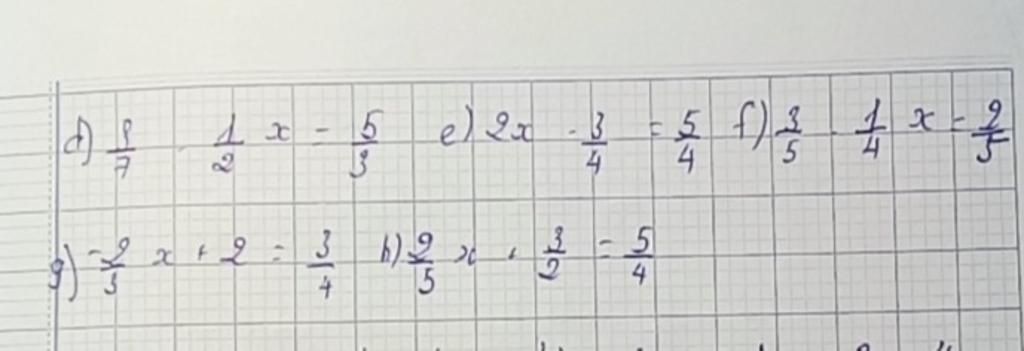 d) 8/7 - 1/2 x = 5/3 e) 2x - 3/4 = 5/4 f) 3/5 - 1/4 x = 2/5
g) -2/3 x + 2 = 3/4 h) 2/5 x + 3/2 = 5/4